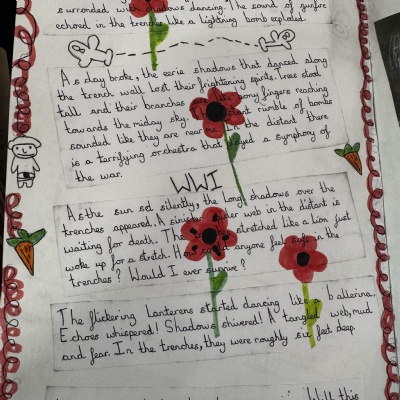 surronded with shadows dancing. The sound of gunfire
echoed in the trenches like a lightning bomb exploded.
As day broke, the eerie shadows that danced along
the trench wall lost their frightening spirits. Trees stood
tall and their branches like bony fingers reaching
towards the midday sky. distant rumble of bombs
sounded like they are near me. In the distant there
is a terrifying orchestra that played a symphony of
the war.
WWI
As the sun set silently, the long shadows over the
trenches appeared. A sinister web in the distant is
waiting for death. The stretched like a lion just
woke up for a stretch. How could anyone feel safe in the
trenches? Would I ever survive?
The flickering Lanterens started dancing like a ballerina.
Echoes whispered! Shadows shivered! A tangled web, mud
and fear. In the trenches, they were roughly six feet deep.
this